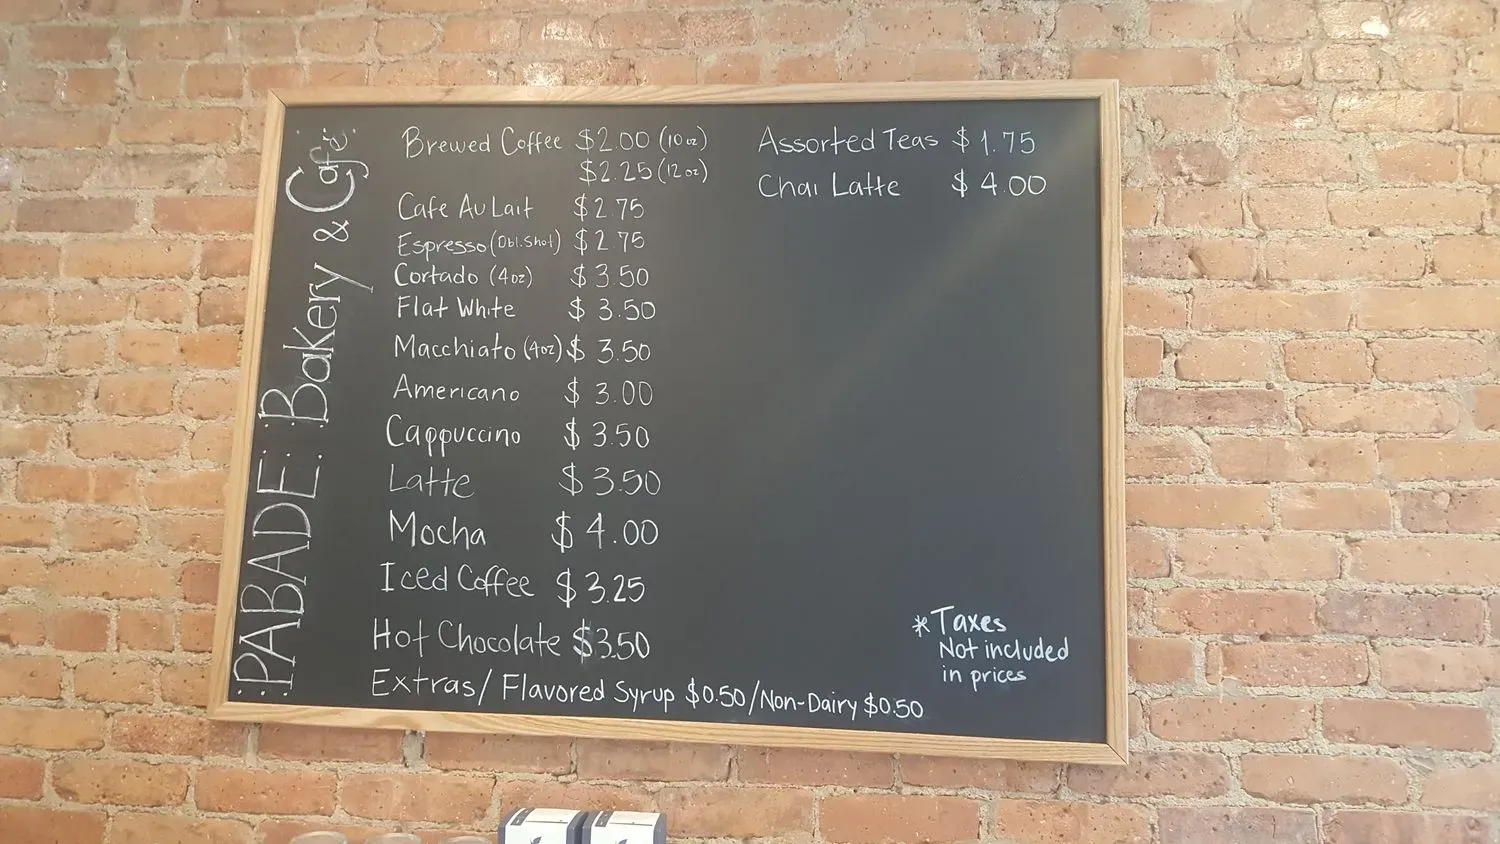 :PABADE: Bakery & Café:
Brewed Coffee $2.00 (10oz)
$2.25 (12oz)
Cafe Au Lait $2.75
Espresso (Dbl.Shot) $2.75
Cortado (4oz) $3.50
Flat White $3.50
Macchiato (4oz) $3.50
Americano $3.00
Cappuccino $3.50
Latte $3.50
Mocha $4.00
Iced Coffee $3.25
Hot Chocolate $3.50
Extras/ Flavored Syrup $0.50/Non-Dairy $0.50
Assorted Teas $1.75
Chai Latte $4.00
*Taxes
Not included
in prices